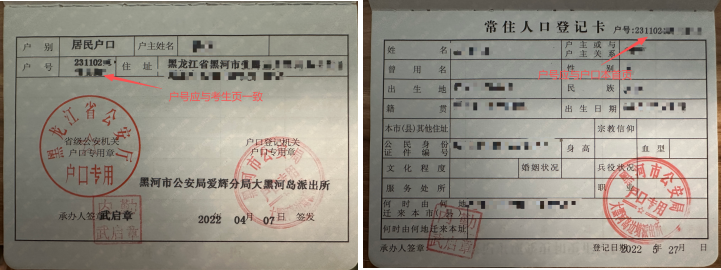 户 别 居民户口 户主姓名
户 号 231102 住 址 黑龙江省黑河市
户号应与考生页一致
省级公安机关
户口专用章
户口登记机关
户口专用章
黑龙江省公安厅
户口专用
黑河市公安局爱辉分局大黑河岛派出所
承办人签章 武启章
武启章
2022 年 04 月 07 日 签发
常住人口登记卡
户号:231102
姓 名
户主或与
户主关系
曾 用 名
性 别
户号应与户口
出 生 地
民 族
籍 贯
出生日期
本市(县)其他住址
宗教信仰
公民身份
证件编号
身 高
血 型
文化程度
婚姻状况
兵役状况
服务处所
职 业
何时由何地
迁来本市(县)
何时由何地迁来本址
黑河市公安局
户口专用
承办人签章
登记日期 2022 年 5 月 27 日